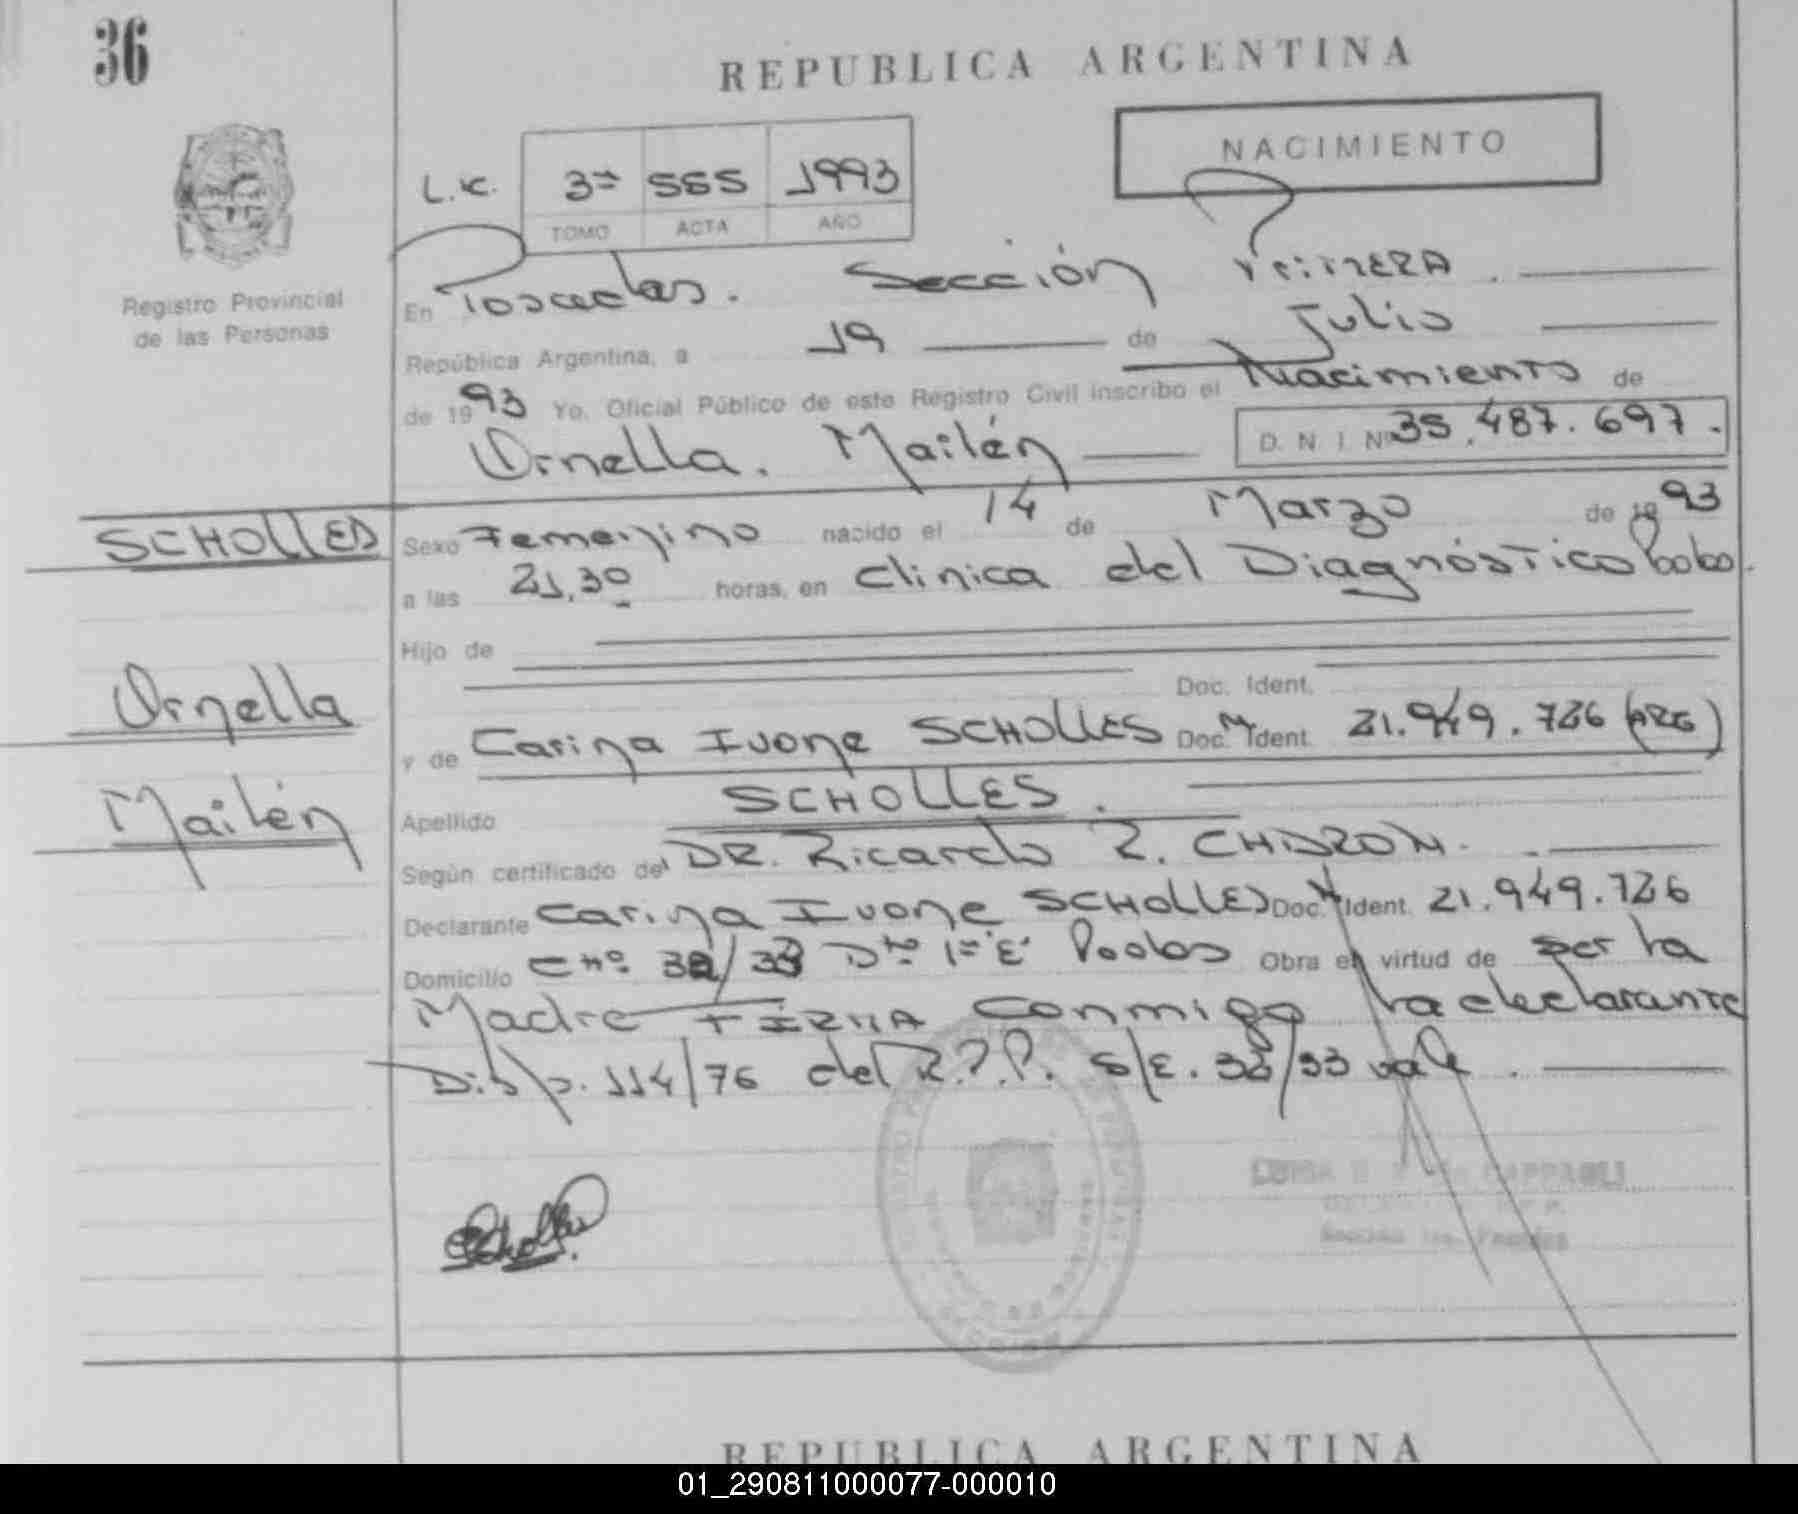 36
REPUBLICA ARGENTINA
NACIMIENTO
L.C. 3ª 555 1993
TOMO ACTA AÑO
Registro Provincial
de las Personas
En Posadas. Sección Primera.
República Argentina, a 19 de Julio
de 1993 Yo, Oficial Público de este Registro Civil inscribo el Nacimiento de
Ornella. Mailén D. N. I. Nº 35.487.697.
SCHOLLES
Sexo Femenino nacido el 14 de Marzo de 1993
a las 21,30 horas, en Clínica del Diagnóstico
Hijo de
Doc. Ident.
Ornella
y de Carina Ivone SCHOLLES Doc. Ident. 21.949.726 (ARG)
Mailén
Apellido SCHOLLES.
Según certificado del DR. Ricardo R.
Declarante Carina Ivone SCHOLLES Doc. Ident. 21.949.726
Domicilio 32/33 Dto 1º E Posdas Obra en virtud de ser la
Madre FIRMA conmigo la declarante
Disp. 114/76 del R.P.P. S/E. 32/33 vale.
Scholles
REPUBLICA ARGENTINA
01_290811000077-000010